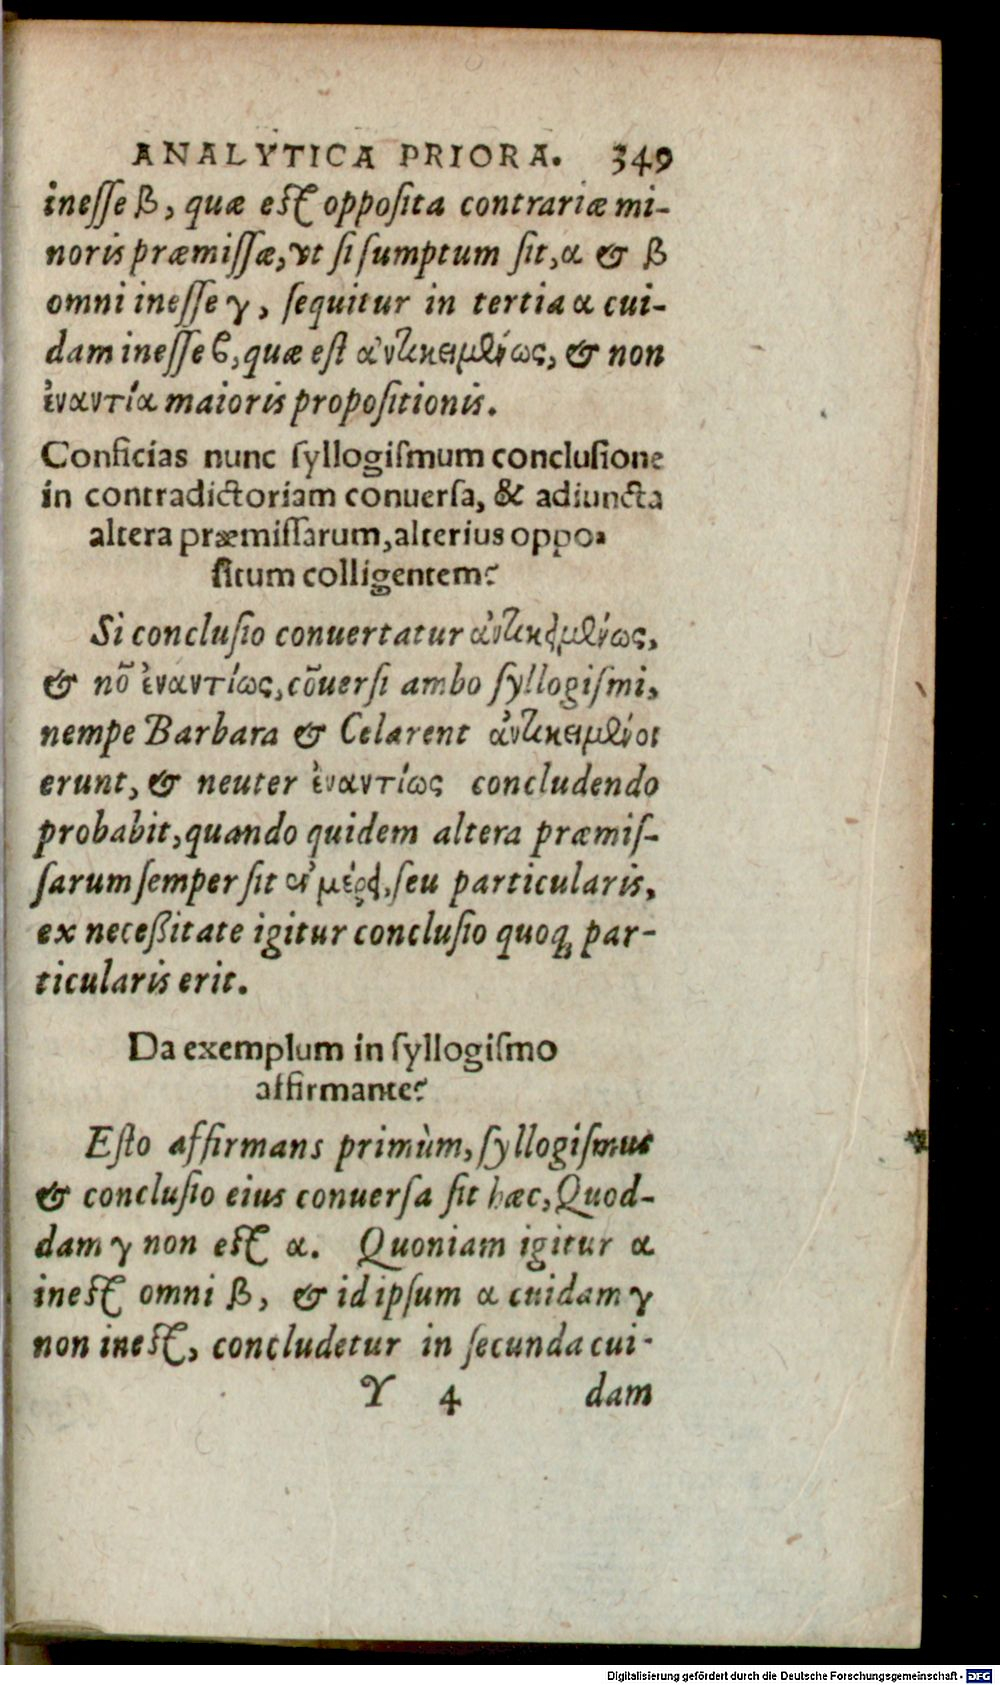 ANALYTICA PRIORA. 349
ineſſe β, quæ eſt oppoſita contrariæ mi-
noris præmiſſæ, vt ſi ſumptum ſit, α & β
omni ineſſe γ, ſequitur in tertia α cui-
dam ineſſe ϐ, quæ eſt ἀντικειμένως, & non
ἐναντία maioris propoſitionis.
Conficias nunc ſyllogiſmum concluſione
in contradictoriam conuerſa, & adiuncta
altera præmiſſarum, alterius oppo-
ſitum colligentem?
Si concluſio conuertatur ἀντικειμένως,
& nō ἐναντίως, cōuerſi ambo ſyllogiſmi,
nempe Barbara & Celarent ἀντικειμένοι
erunt, & neuter ἐναντίως concludendo
probabit, quando quidem altera præmiſ-
ſarum ſemper ſit ἐν μέρει, ſeu particularis,
ex neceßitate igitur concluſio quoq; par-
ticularis erit.
Da exemplum in ſyllogiſmo
affirmante?
Eſto affirmans primùm, ſyllogiſmus
& concluſio eius conuerſa ſit hæc, Quod-
dam γ non eſt α. Quoniam igitur α
ineſt omni β, & id ipſum α cuidam γ
non ineſt, concludetur in ſecunda cui-
Y 4 dam
Digitalisierung gefördert durch die Deutsche Forschungsgemeinschaft - DFG